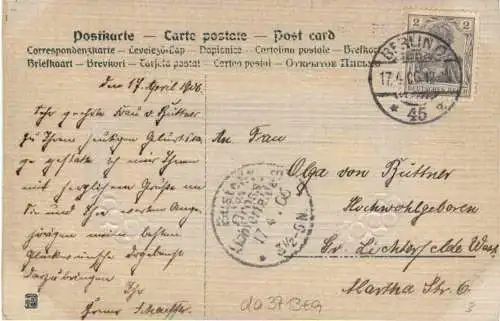 Postkarte – Carte postale – Post card
Correspondenzkarte – Levelező-Lap – Dopisnice – Cartolina postale – Brefkort
Briefkaart – Brevkort – Cartão postal – Cartes postal – Открытое Письмо
2
BERLIN
17.4.06
45 a.
den 17. April 1906.
Sehr geehrte Frau v. Büttner
zu Ihrem heutigen Geburtsta-
ge gestatte ich mir Ihnen
mit herzlichem Grüße an
Sie und Ihre werten Ange-
hörigen meine besten
Glückwünsche ergebenst
darzubringen
Ihr
An Frau
Olga von Büttner
Hochwohlgeboren
Gr. Lichterfelde West.
Martha Str. 6
17.4.06
N.
3